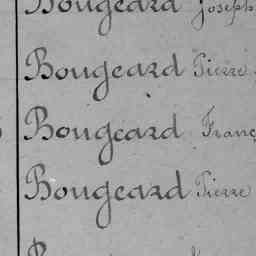 Bougeard Joseph
Bougeard Pierre
Bougeard Franç
Bougeard Pierre